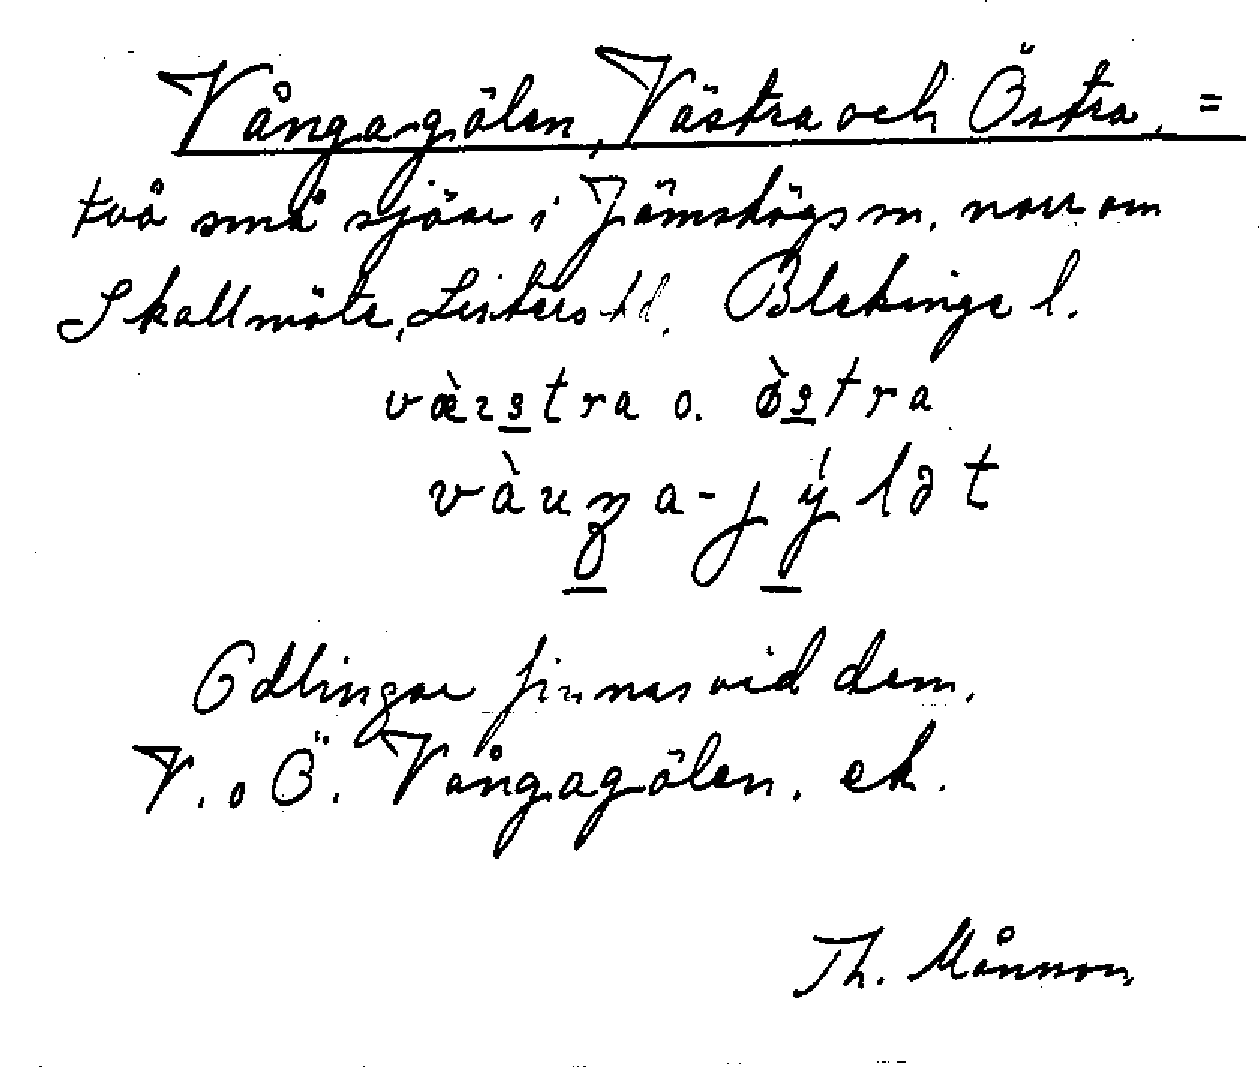 Vångagölen, Västra och Östra, =
två små sjöar i Jämshögs sn, norr om
Skallmöta, Listers hd, Blekinge l.
væ̀ꝛs̲tra o. ø̀s̲tra
vàuŋ̲a-jý̲lət
Odlingar finnas vid dem.
V. o Ö. Vångagölen. ek.
Th. Månsson